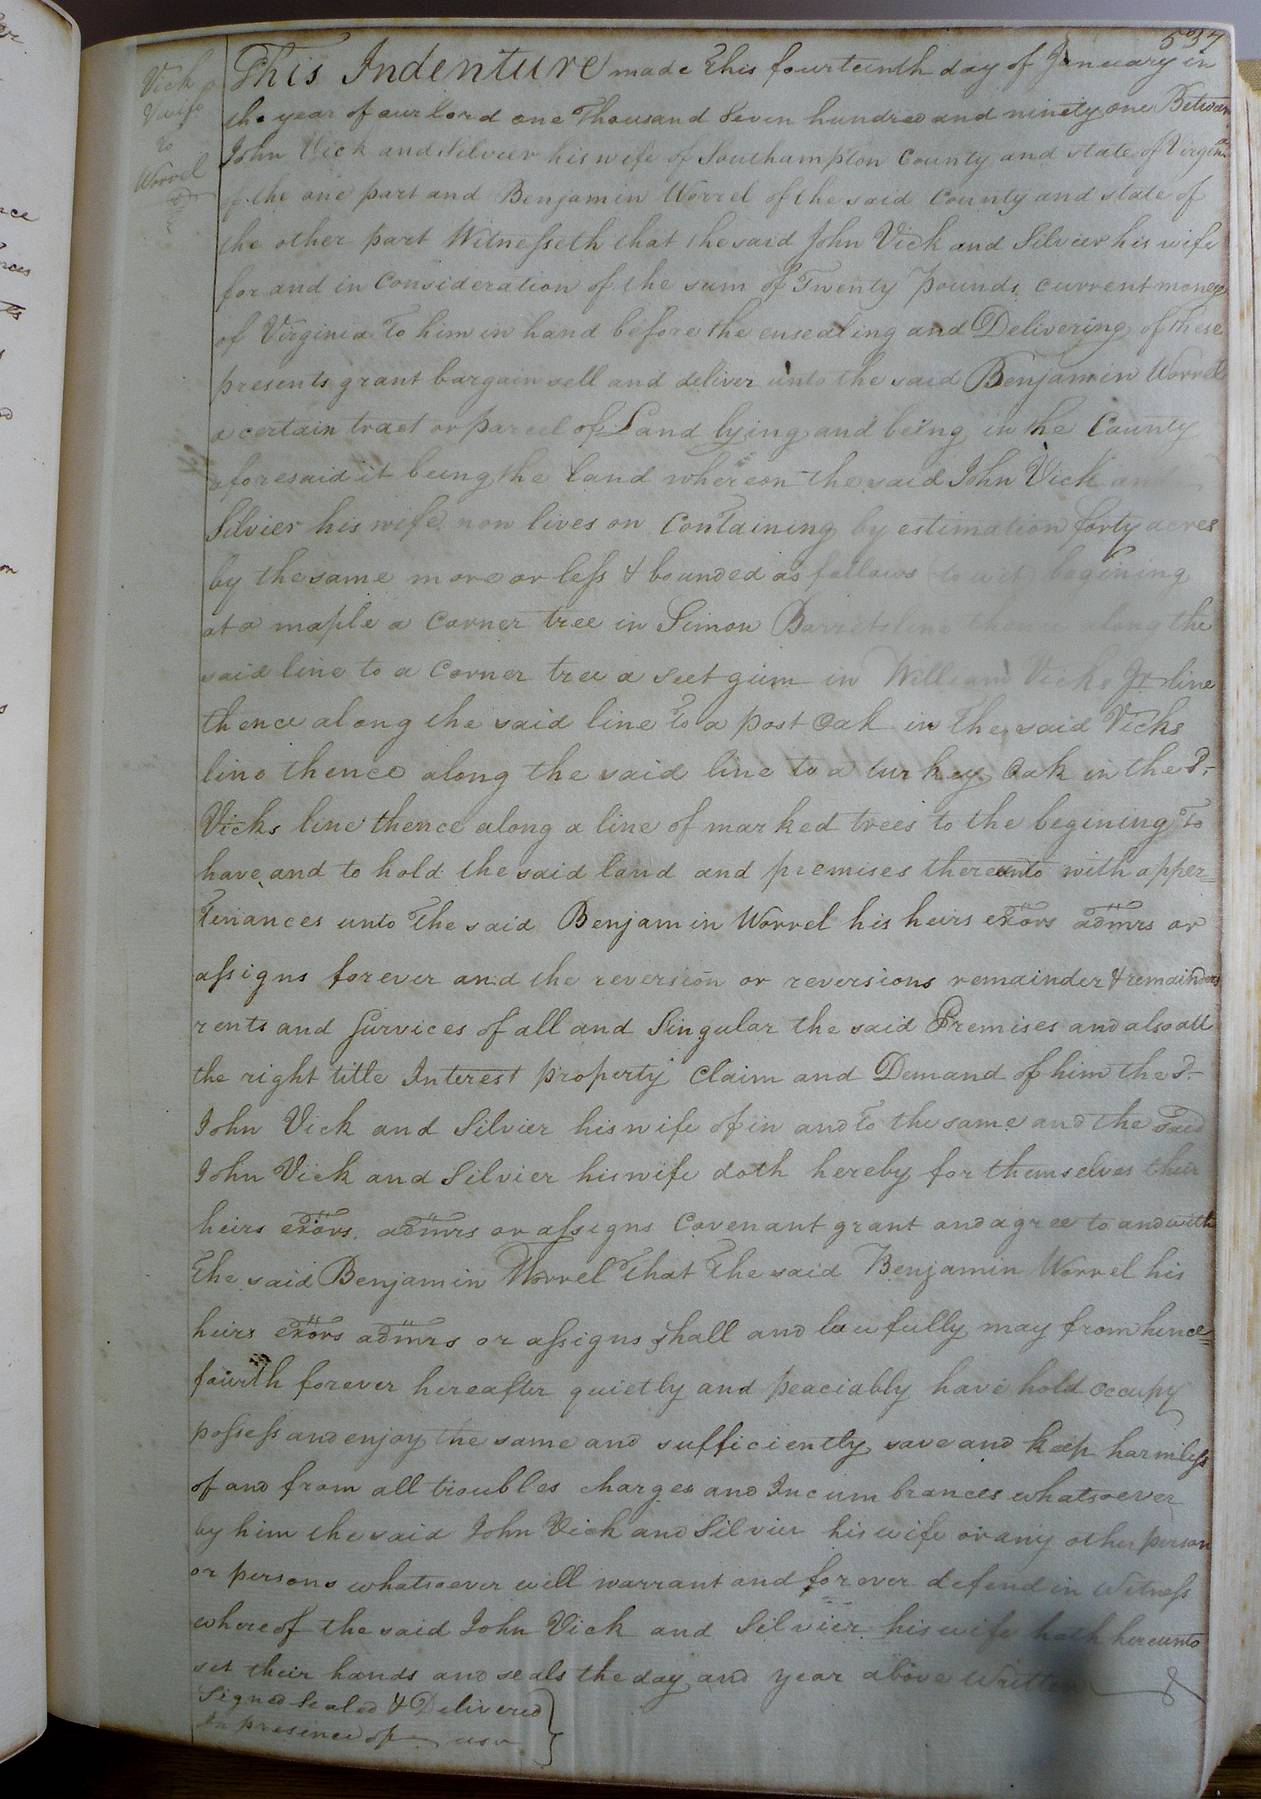 537
Vick &
Wife
to
Worrel
This Indenture made This fourteenth day of January in
the year of our lord one Thousand Seven hundred and ninety one Between
John Vick and Silvier his wife of Southampton County and state of Virginia
of the one part and Benjamin Worrel of the said County and state of
the other part Witnesseth that the said John Vick and Silvier his wife
for and in Consideration of the sum of Twenty pounds current money
of Virginia To him in hand before the ensealing and Delivering of these
presents grant bargain sell and deliver unto the said Benjamin Worrel
a certain tract or parcel of Land lying and being in the County
aforesaid it being the land whereon the said John Vick and
Silvier his wife now lives on Containing by estimation forty acres
by the same more or less & bounded as follows to wit begining
at a maple a Corner tree in Simon Barrets line thence along the
said line to a Corner tree a seet gum in William Vicks Jr line
thence along the said line To a post Oak in the said Vicks
line thence along the said line to a turkey Oak in the Sd.
Vicks line thence along a line of marked trees to the begining To
have and to hold the said land and premises thereunto with apper=
tenances unto The said Benjamin Worrel his heirs exors admrs or
assigns forever and the reversion or reversions remainder & remainders
rents and survices of all and Singular the said Premises and also all
the right title Interest property Claim and Demand of him the Sd.
John Vick and Silvier his wife of in and To the same and the said
John Vick and Silvier his wife doth hereby for themselves their
heirs exors. admrs or assigns Covenant grant and agree to and with
The said Benjamin Worrel That The said Benjamin Worrel his
heirs exors admrs or assigns shall and lawfully may from hence=
fourth forever hereafter quietly and peaciably have hold occupy
possess and enjoy the same and sufficiently save and keep harmless
of and from all troubles charges and Incumbrances whatsoever
by him the said John Vick and Silvier his wife or any other person
or persons whatsoever will warrant and forever defend in Witness
whereof the said John Vick and Silvier his wife hath hereunto
set their hands and seals the day and year above Written
Signed Sealed & Delivered
In presence of